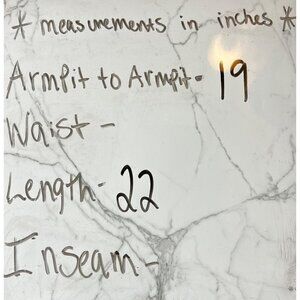 * measurements in inches *
Armpit to Armpit- 19
Waist -
Length- 22
Inseam -